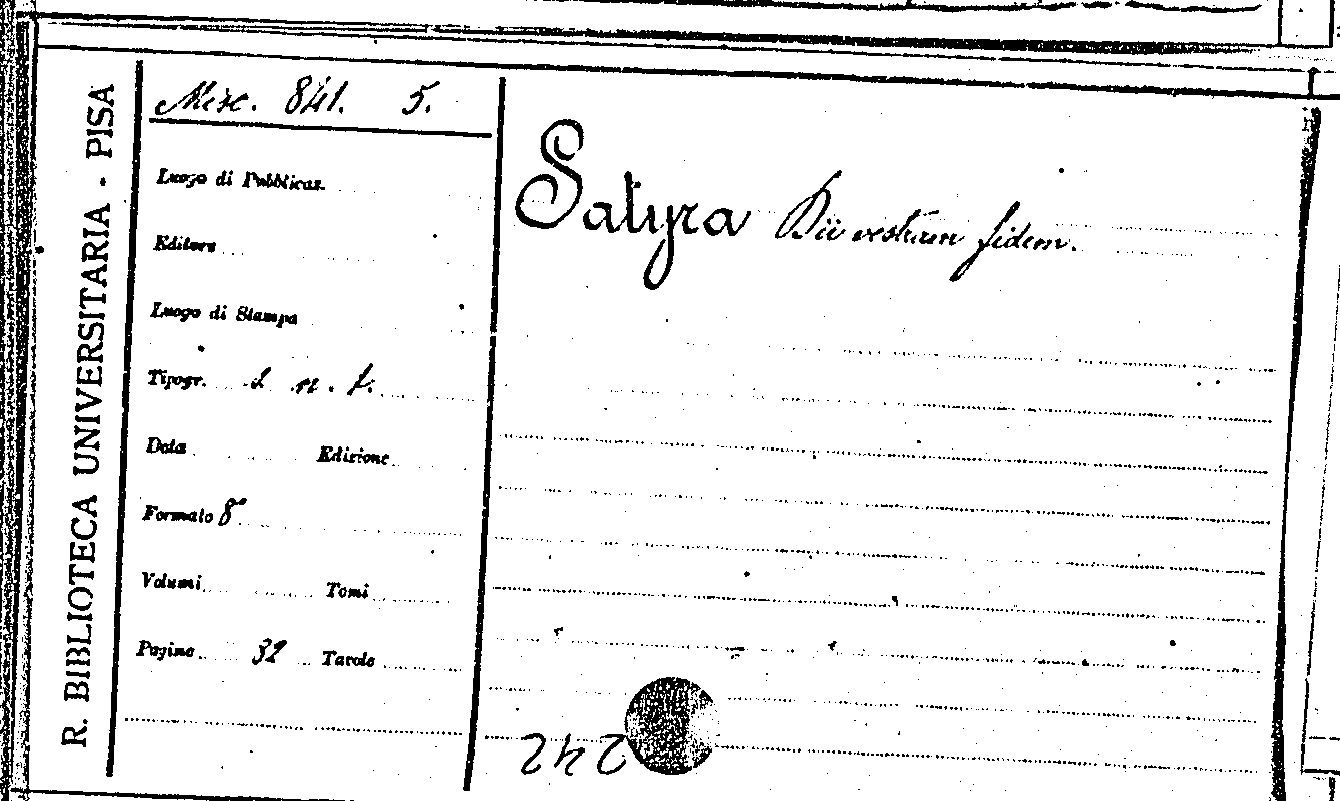 R. BIBLIOTECA UNIVERSITARIA - PISA
Misc. 841. 5.
Luogo di Pubblicaz.
Editore
Luogo di Stampa
Tipogr. s. n. t.
Data Edizione
Formato 8°
Volumi Tomi
Pagine 32 Tavole
Satyra Dii vestram fidem.
242